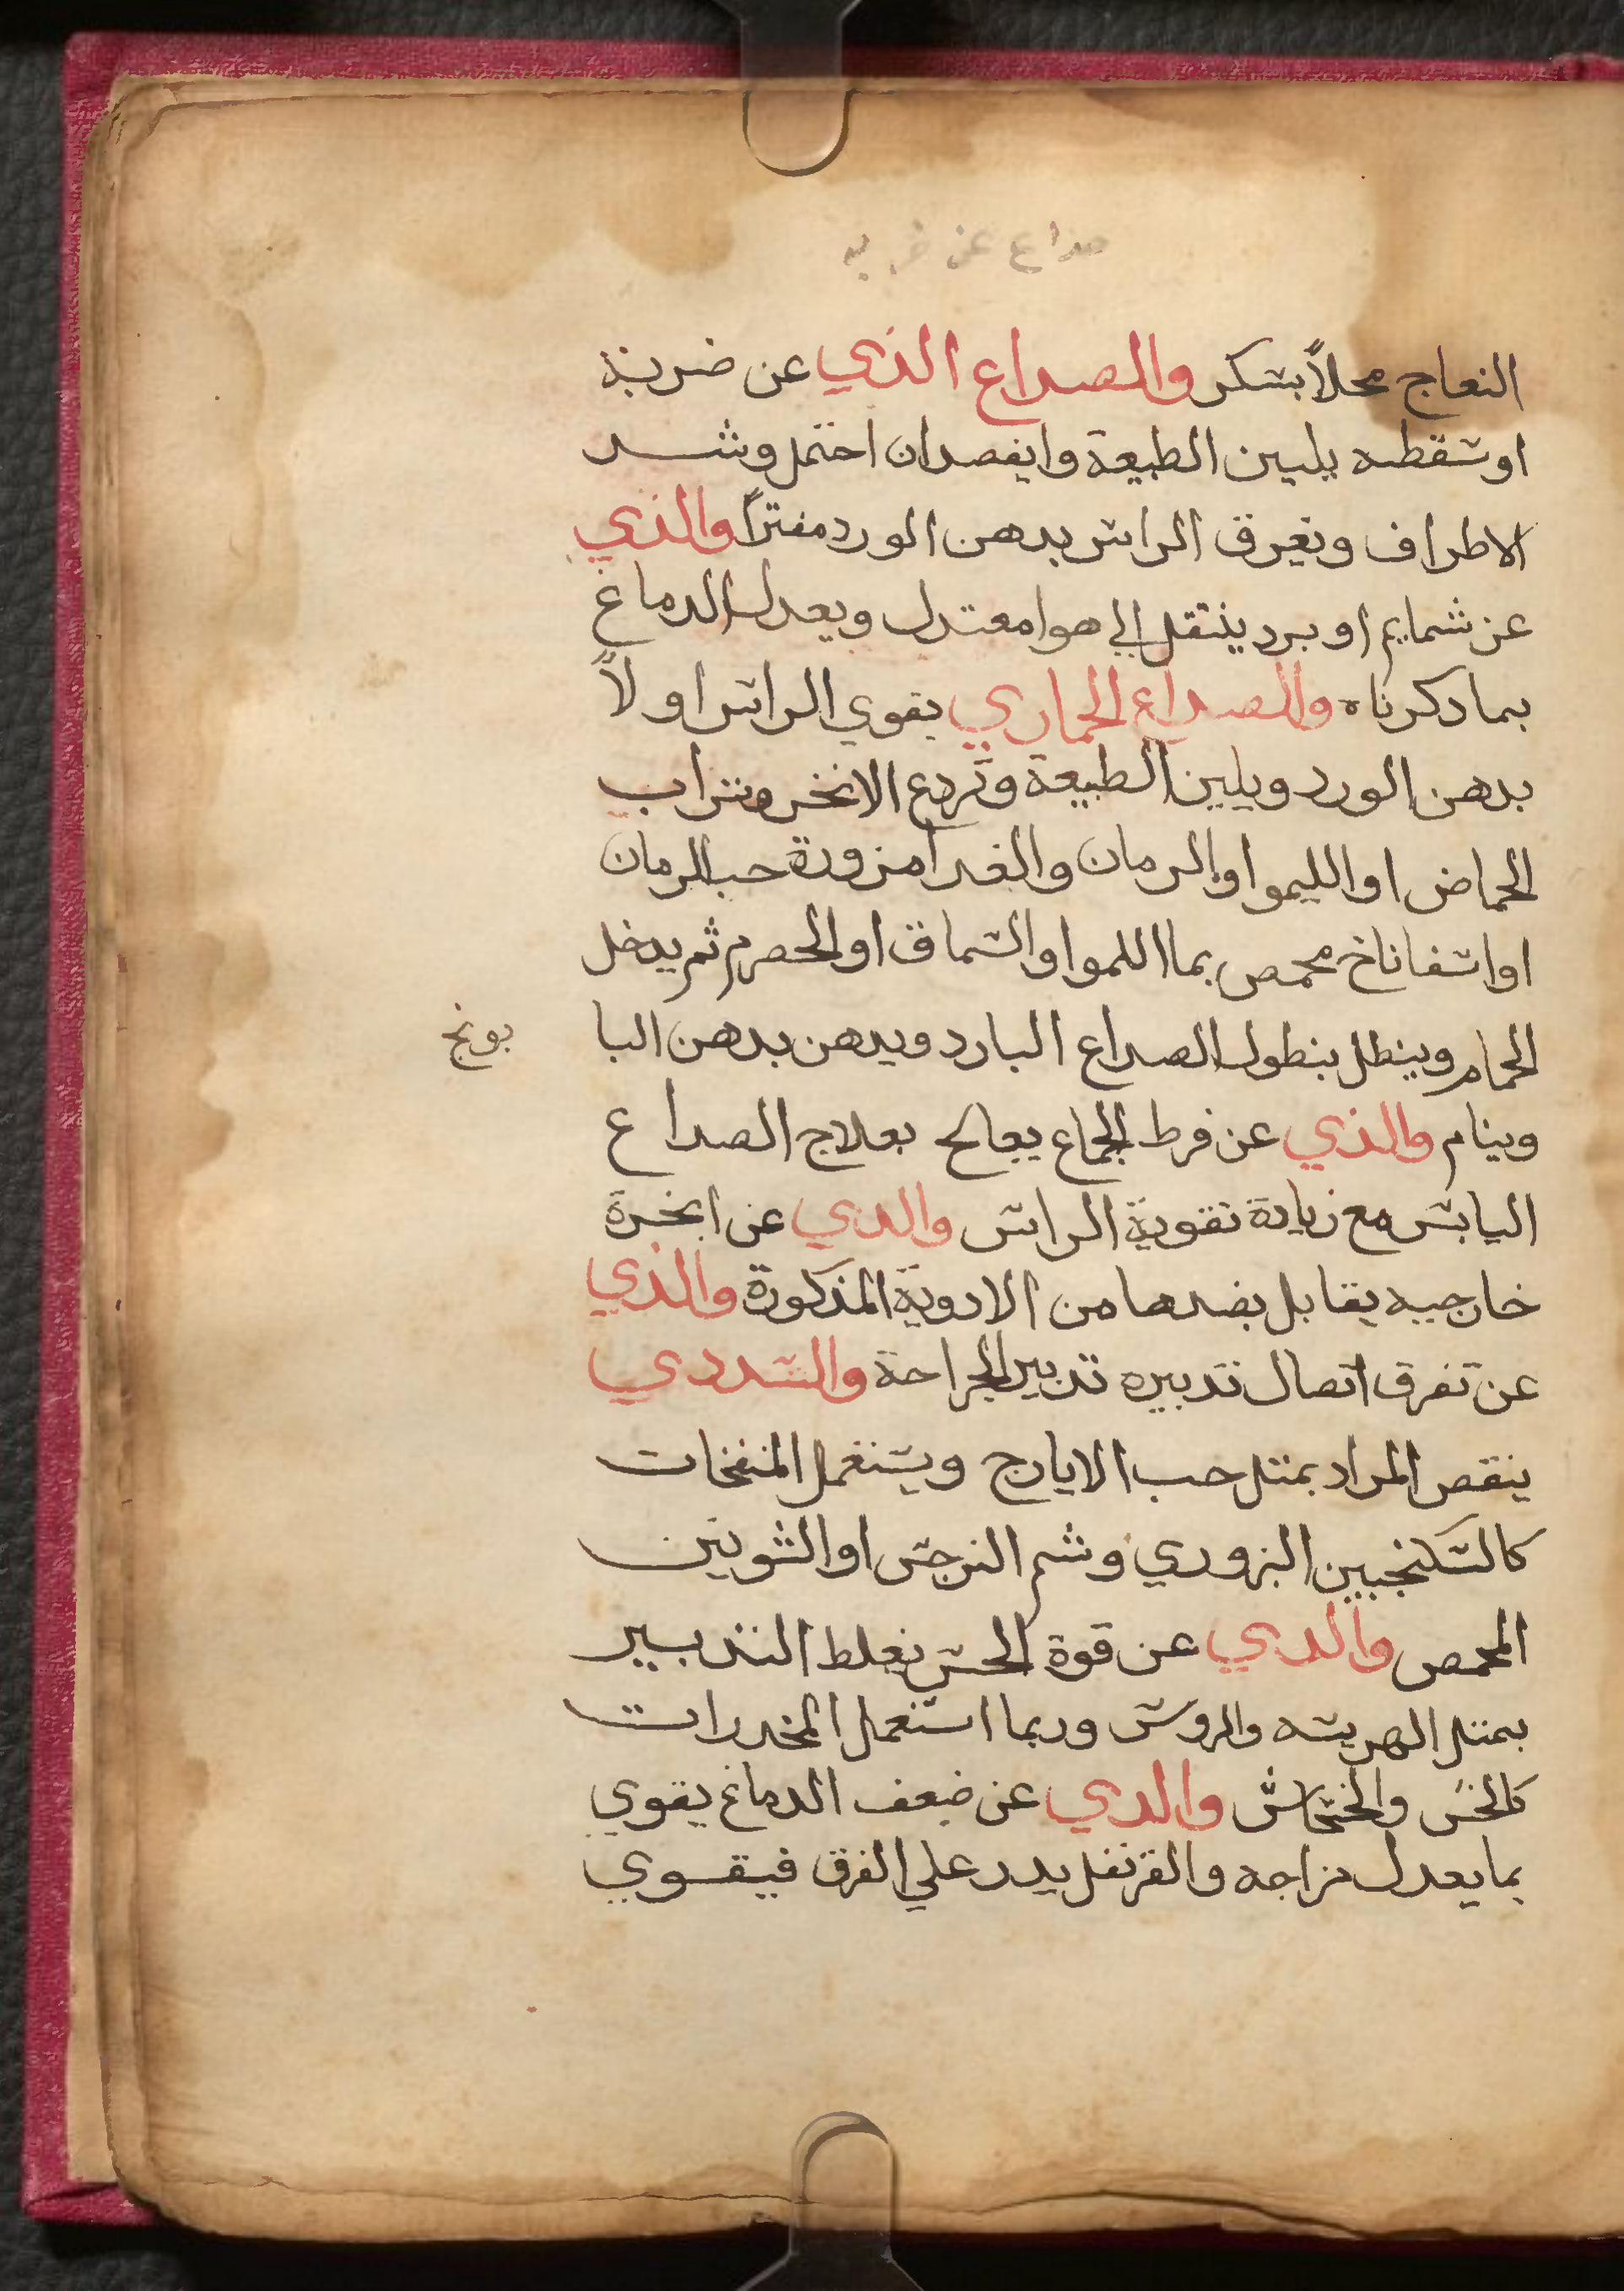 صداع عن ضربه
النعاج محلاً بسكر والصداع الذي عن ضربة
او سقطه يليين الطبيعة وايفصد ان احتمل وشد
الاطراف ويغرق الراس بدهن الورد مفتراً والذي
عن شمايم او برد ينتقل الي هوا معتدل ويعدل الدماغ
بما دكرناه والصداع الخماري يقوي الراس اولاً
بدهن الورد ويلين الطبيعة وتردع الانخر وشراب
الحماض او الليموا والرمان والغدا مزورة حب الرمان
او اسفاناخ محمص بما اللموا والسماق او الحصرم ثم يدخل
الحمام وينطل بنطول الصداع البارد ويدهن بدهن البا
بونج
وينام والذي عن فرط الجماع يعالح بعلاج الصداع
اليابس مع زيادة تقوية الراس والدي عن ابخرة
خارجيه يقابل بضدها من الادوية المذكورة والذي
عن تفرق اتصال تدبيره تدبير الجراحة والسددي
ينقص المراد بمتل حب الايارج ويستعمل المنفخات
كالسكنجبين البزوري وشم النرجس او الشوينن
المحمص والدي عن قوة الحس يغلط التدبير
بمتل الهريسه والروس وربما استعمل المخدرات
كالخس والخشخاش والدي عن ضعف الدماغ يقوي
بما يعدل مزاجه والقرنفل يدر علي الفرق فيقوي